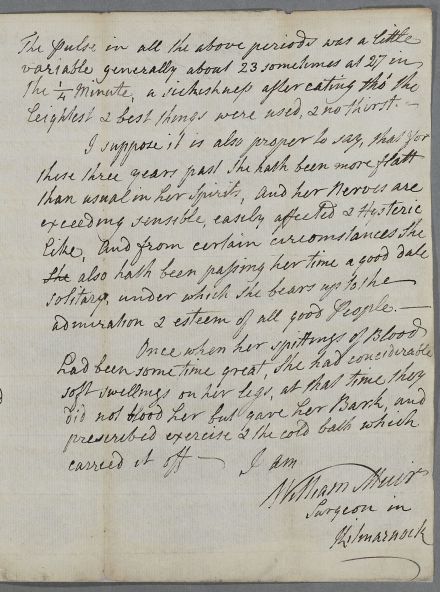 The Pulse in all the above periods was a little
variable generally about 23 sometimes at 27 in
the 1/4 Minute, a sickishness after eating tho' the
leightest & best things were used, & no thirst. —
I suppose it is also proper to say, that for
these three years past she hath been more flatt
than usual in her Spirits, And her Nerves are
exceeding sensible, easily affected & Histeric
like, And from certain circomstances She
She also hath been passing her time a good dale
solitary, under which She bears up to the
admiration & esteem of all good People. —
Once when her spittings of Blood
had been some time great, She had considerable
soft swellings on her legs, at that time they
did not blood her but gave her Bark, and
prescribed exercise & the cold bath which
carried it off — I am
William Muir
Surgeon in
Kilmarnock